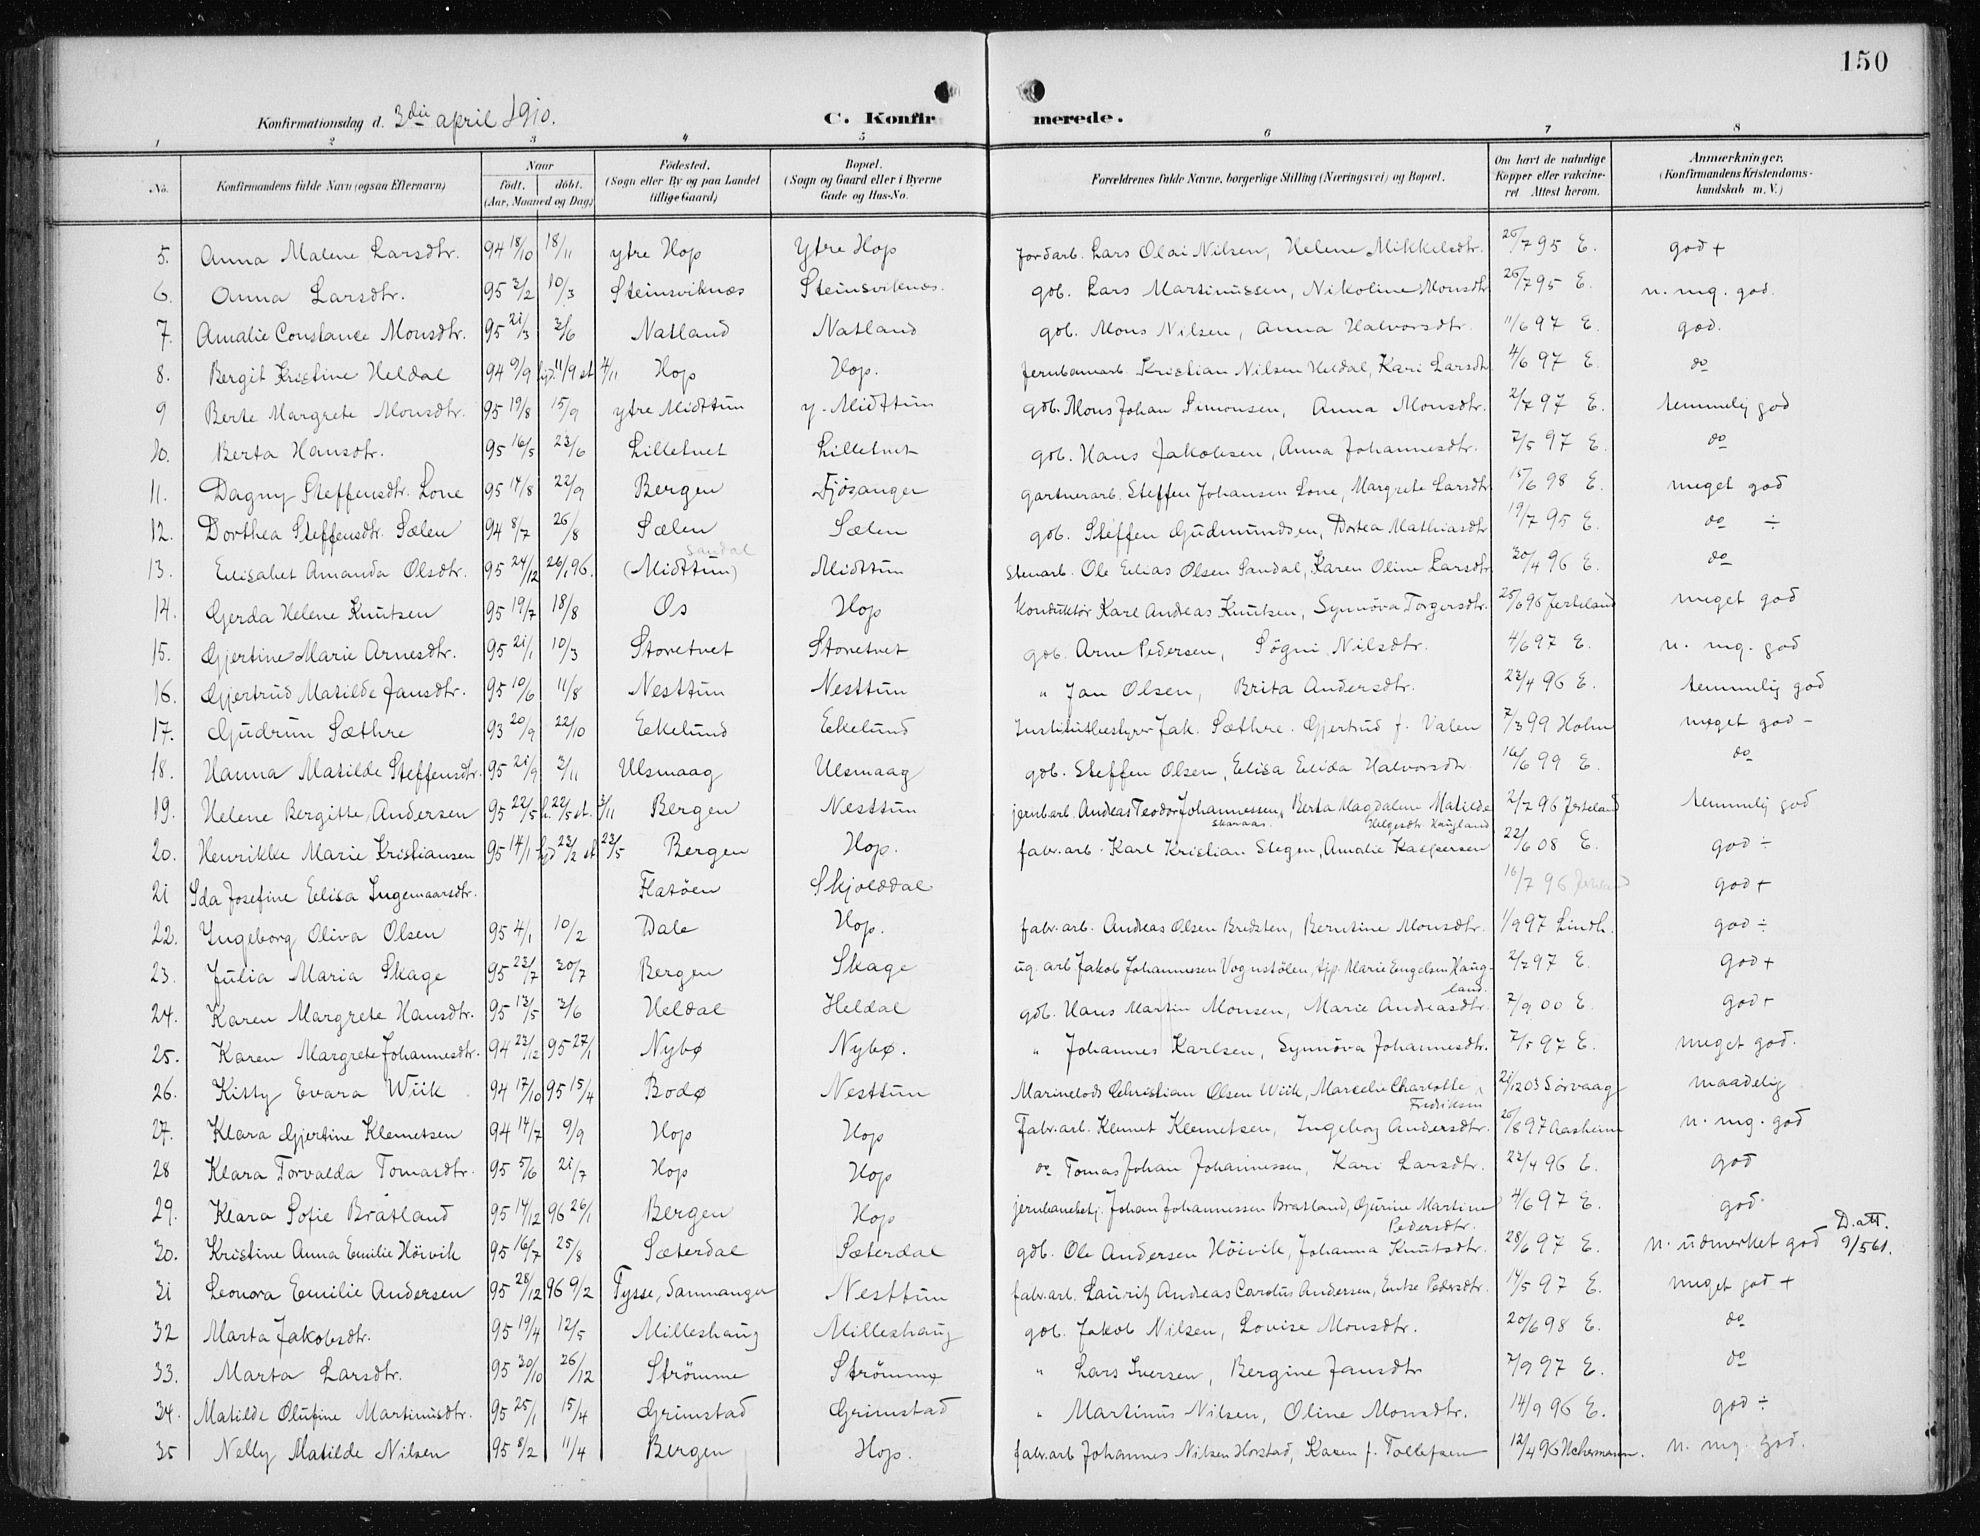 150
Konfirmationsdag d. 3die april 1910.
C. Konfirmerede.
1 2 3 4 5 6 7 8
No. Konfirmandens fulde Navn (ogsaa Efternavn) Naar født. døbt. (Aar, Maaned og Dag) Fødested. (Sogn eller By og paa Landet tillige Gaard) Bopæl. (Sogn og Gaard eller i Byerne Gade og Hus-No. Forældrenes fulde Navne, borgerlige Stilling (Næringsvei) og Bopæl. Om havt de naturlige Kopper eller vaccineret. Attest herom. Anmærkninger. (Konfirmandens Kristendomskundskab m. V.)
5. Anna Malene Larsdtr. 94 18/10 18/11 ytre Hop Ytre Hop jordarb. Lars Olai Nilsen, Helene Mikkelsdtr. 26/7 95 E. god +
6. Anna Larsdtr. 95 3/2 10/3 Steinsviknæs Steinsviknæs. gdb. Lars Martinussen, Nikoline Monsdtr 26/7 95 E. n. mg. god.
7. Amalie Constance Monsdtr. 95 21/3 3/6 Natland Natland gdb. Mons Nilsen, Anna Halvorsdtr. 11/6 97 E. god.
8. Bergit Kristine Heldal 94 9/9 hjd. 11/9 st. 4/11 Hop Hop. jernbanarb. Kristian Nilsen Heldal, Kari Larsdtr 4/6 97 E. do
9 Berte Margrete Monsdtr. 95 19/8 15/9 ytre Midttun y. Midttun gdb. Mons Johan Simonsen, Anna Monsdtr. 2/7 97 E. temmelig god
10. Berta Hansdtr. 95 16/5 23/6 Lilletvet Lilletvet gdb. Hans Jakobsen, Anna Johannesdtr. 7/5 97 E. do
11. Dagny Steffensdtr. Lone 95 14/8 22/9 Bergen Fjøsanger gartnerarb. Steffen Johansen Lone, Margrete Larsdtr. 15/6 98 E. meget god
12. Dorthea Steffensdtr. Sælen 94 8/7 26/8 Sælen Sælen gdb. Steffen Gudmundsen, Dortea Mathiasdtr 19/7 95 E. do ÷
13. Elisabet Amanda Olsdtr. 95 24/12 26/1 96. Sandal (Midttun) Midttun Stenarb. Ole Elias Olsen Sandal, Karen Oline Larsdtr. 30/4 96 E. do
14. Gjerda Helene Knutsen 95 19/7 18/8 Os Hop Konduktør Karl Andreas Knutsen, Synnöva Torgersdtr. 25/6 96 Jerteland meget god
15. Gjertine Marie Arnesdtr. 95 21/1 10/3 Storetvet Storetvet gdb. Arne Pedersen, Søgni Nilsdtr. 4/6 97 E. n. mg. god
16. Gjertrud Matilde Jansdtr. 95 10/6 11/8 Nesttun Nesttun " Jan Olsen, Brita Andersdtr. 23/4 96 E. temmelig god
17. Gudrun Sæthre 93 20/9 22/10 Eekelund Eekelund Institutbestyrer Jak. Sæthre. Gjertrud f. Valen 7/3 99 Holm meget god -
18. Hanna Matilde Steffensdtr. 95 21/9 3/11 Ulsmaag Ulsmaag gdb. Steffen Olsen, Elisa Elida Halvorsdtr. 16/6 99 E. do
19. Helene Bergitte Andersen 95 22/5 h. 22/5 st. 3/11 Bergen Nesttun jernb.arb. Andreas Teodor Johannessen, Skaraas. Berta Magdalene Matilde Helgesdtr. Haugland 2/7 96 Jerteland temmelig god
20. Henrikke Marie Kristiansen 95 14/1 hjd 23/2 st 23/5 Bergen Hop. fabr.arb. Karl Kristian Stegen, Amalie Kaspersen 22/6 08 E. god ÷
21 Ida Josefine Elisa Ingemaarsdtr. Flatöen Skjolddal 16/7 96 Jerteland god +
22. Ingeborg Oliva Olsen 95 4/1 10/2 Dale Hop. fabr.arb. Andreas Olsen Bredsten, Berntine Monsdtr. 1/9 97 Lindh. god ÷
23. Julia Maria Skage 95 23/7 30/7 Bergen Skage ug. arb Jakob Johannessen Vognstölen, tjp. Marie Engelsen Haugland. 2/7 97 E. god +
24. Karen Margrete Hansdtr. 95 13/5 3/6 Heldal Heldal gdb. Hans Martin Monsen, Marie Andreasdtr. 7/9 00 E. god +
25. Karen Margrete Johannesdtr. 94 23/12 95 27/1 Nybø Nybø. " Johannes Karlsen, Synnöva Johannesdtr. 7/5 97 E. meget god.
26. Kitty Evara Wiik 94 17/10 95 15/4 Bodø Nesttun Marinelods Christian Olsen Wiik, Marcelie Charlotte Fredriksen 21/12 03 Sörvaag maadelig
27. Klara Gjertine Klemetsen 94 14/7 9/9 Hop Hop Fabr.arb. Klemet Klemetsen, Ingeborg Andersdtr. 26/8 97 Aasheim n. mg. god
28 Klara Torvalda Tomasdtr. 95 5/6 21/7 Hop Hop do Tomas Johan Johannessen, Kari Larsdtr. 23/4 96 E. god
29. Klara Sofie Bratland 95 14/12 96 26/1 Bergen Hop jernbanebetj. Johan Johannessen Bratland, Gjurine Martine Pedersdtr. 4/6 97 E. god
30. Kristine Anna Emilie Höivik 95 16/7 25/8 Sæterdal Sæterdal gdb. Ole Andersen Höivik, Johanna Knutsdtr. 28/6 97 E. n. udmerket god D.att. 9/5 61.
31 Leonora Emilie Andersen 95 28/12 96 9/2 Tysse, Samnanger Nesttun fabr.arb. Lauritz Andreas Carolus Andersen, Enke Pedersdtr. 14/5 97 E. meget god +
32 Marta Jakobsdtr. 95 19/4 12/5 Milleshaug Milleshaug gdb. Jakob Nilsen, Lovise Monsdtr. 20/6 98 E. do
33. Marta Larsdtr. 95 30/10 26/12 Strömme Strömme " Lars Iversen, Bergine Jansdtr 7/9 97 E. do
34. Matilde Olufine Martinusdtr. 95 25/1 15/4 Grimstad Grimstad " Martinus Nilsen, Oline Monsdtr. 14/9 96 E. god ÷
35 Nelly Matilde Nilsen 95 8/2 11/4 Bergen Hop. fabr.arb Johannes Nilsen Horstad, Karen f. Tollefsen 12/4 96 Uchermann. n. mg. god.